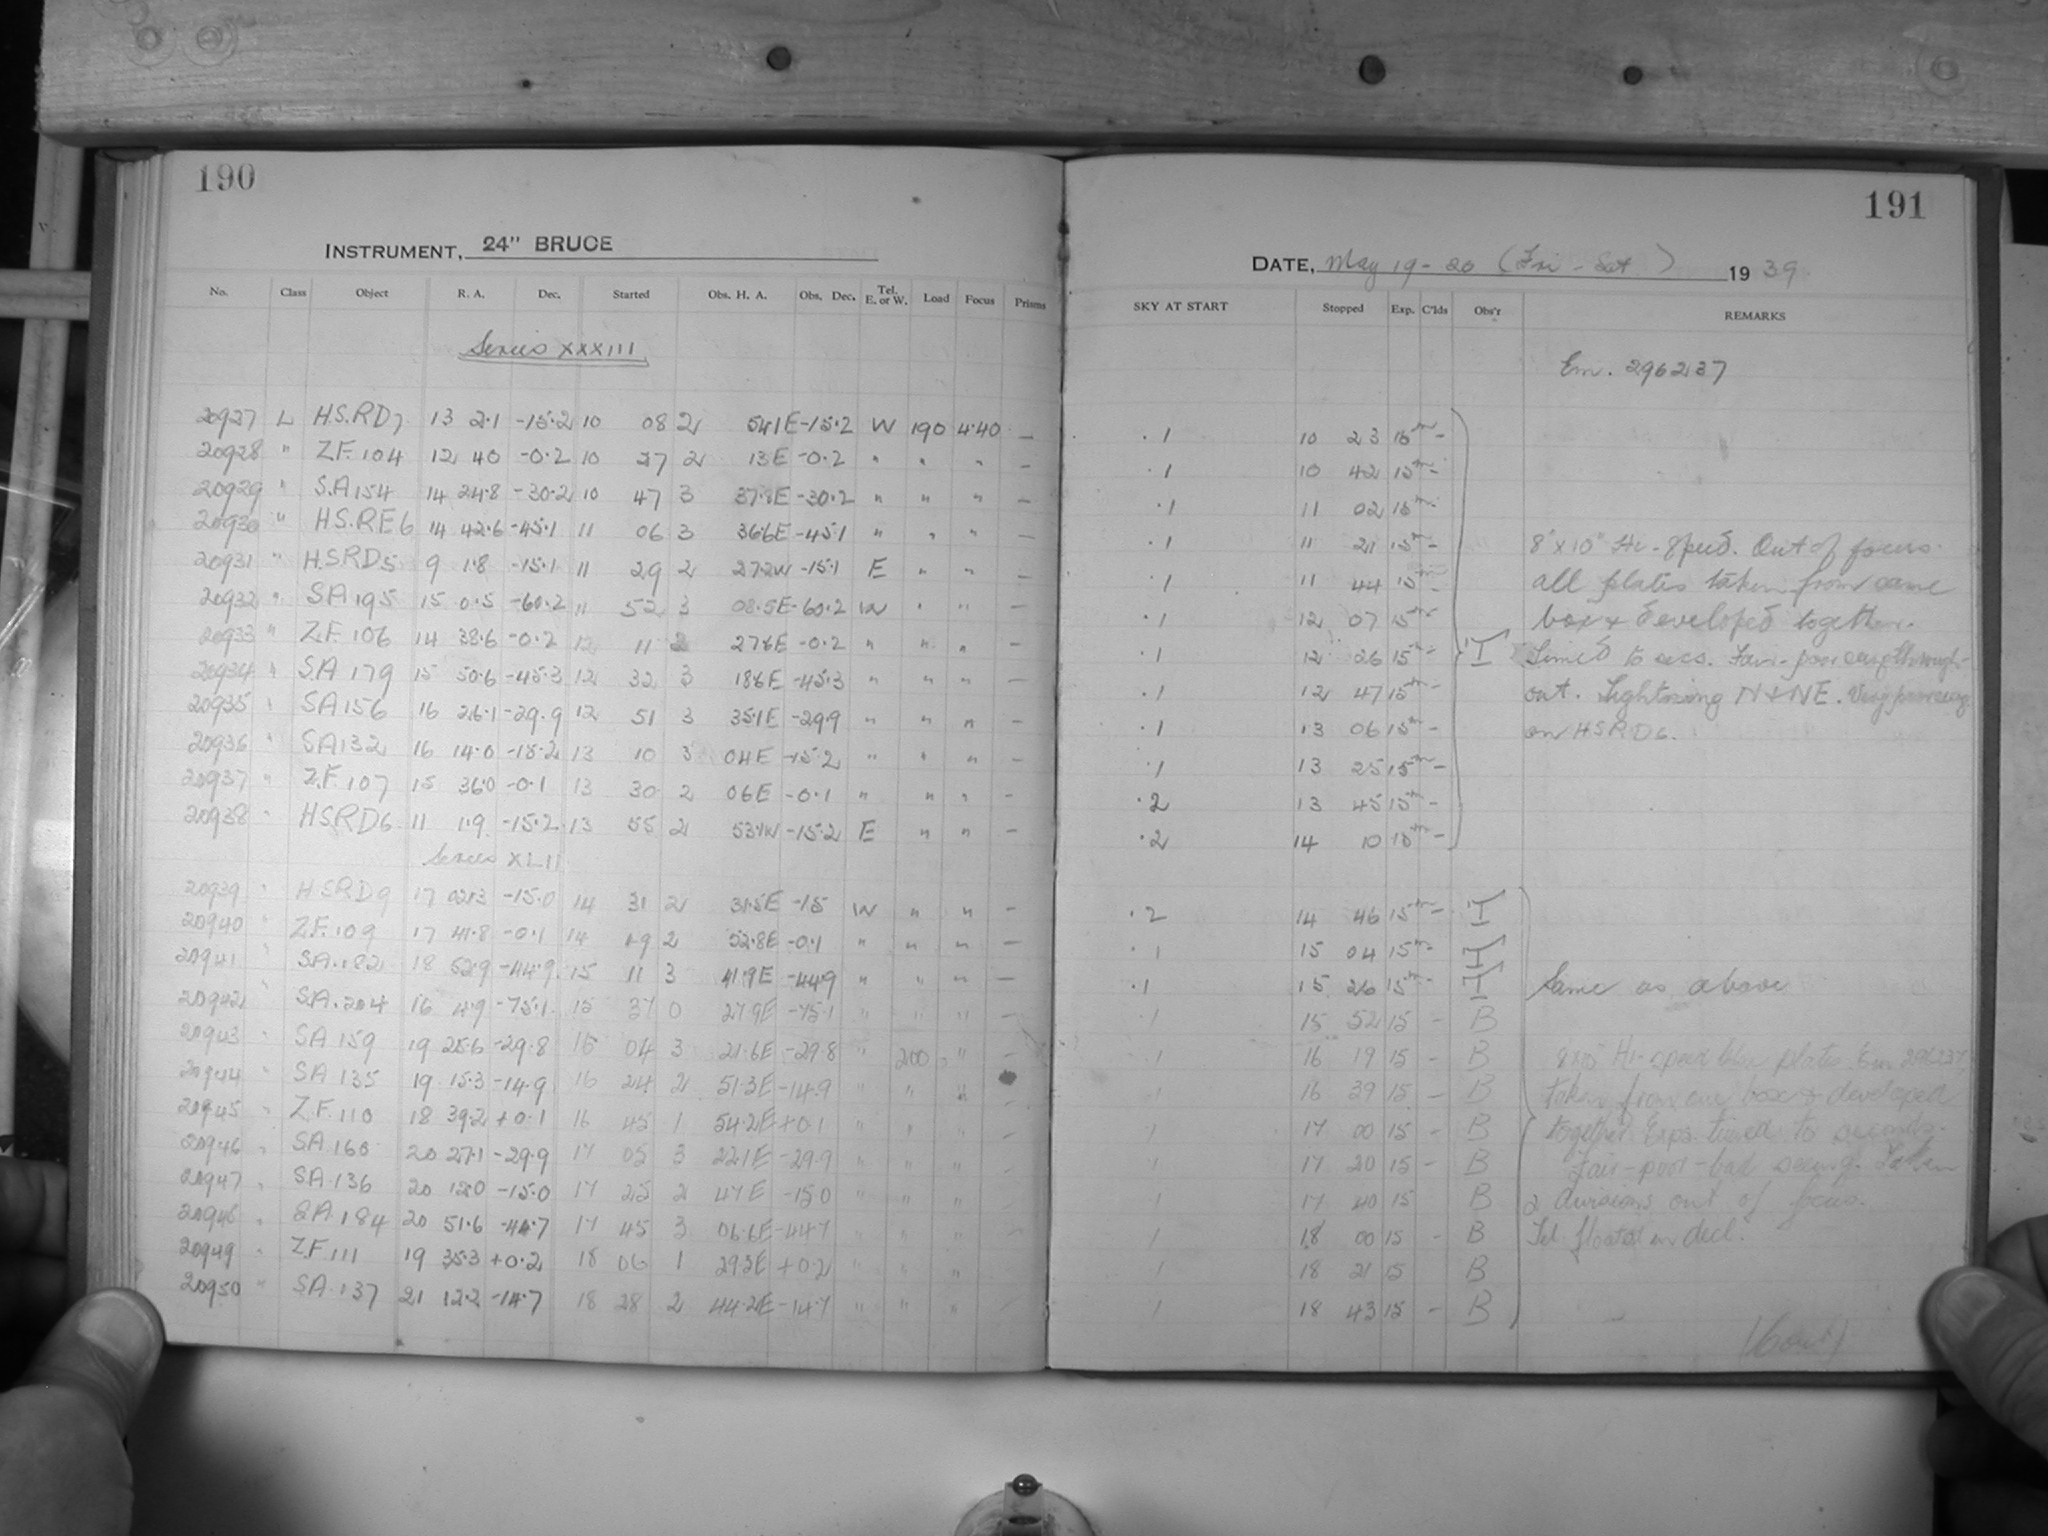 190
INSTRUMENT, 24" BRUCE
No. Class Object R. A. Dec. Started Obs. H. A. Obs. Dec. Tel. E. or W. Load Focus Prisms
Series XXXIII
20927 L H.S.RD7 13 2.1 -15.2 10 08 2 54.1E -15.2 W 190 4.40 -
20928 " Z.F. 104 12 40 -0.2 10 27 2 13E -0.2 " " " -
20929 " S.A 154 14 24.8 -30.2 10 47 3 37.8E -30.2 " " " -
20930 " H.S.RE6 14 42.6 -45.1 11 06 3 36.6E -45.1 " " " -
20931 " H.S.RD5 9 1.8 -15.1 11 29 2 27.2W -15.1 E " " -
20932 " SA 195 15 0.5 -60.2 11 52 3 08.5E -60.2 W " " -
20933 " Z.F. 106 14 38.6 -0.2 12 11 2 27.6E -0.2 " " " -
20934 " S.A 179 15 50.6 -45.3 12 32 3 18.6E -45.3 " " " -
20935 " SA 156 16 26.1 -29.9 12 51 3 35.1E -29.9 " " " -
20936 " SA 132 16 14.0 -15.2 13 10 3 04E -15.2 " " " -
20937 " Z.F. 107 15 36.0 -0.1 13 30 2 06E -0.1 " " " -
20938 " HSRD6 11 1.9 -15.2 13 55 2 53.1W -15.2 E " " -
Series XLII
20939 " HSRD9 17 02.3 -15.0 14 31 2 31.5E -15 W " " -
20940 " Z.F. 109 17 41.8 -0.1 14 49 2 52.8E -0.1 " " " -
20941 " SA.182 18 52.9 -44.9 15 11 3 41.9E -44.9 " " " -
20942 " S.A. 204 16 4.9 -75.1 15 37 0 27.9E -75.1 " " " -
20943 " SA 159 19 25.6 -29.8 16 04 3 21.6E -29.8 " 200 " -
20944 " SA 135 19 15.3 -14.9 16 24 2 51.3E -14.9 " " "
20945 " Z.F. 110 18 39.2 +0.1 16 45 1 54.2E +0.1 " " " -
20946 " SA. 160 20 27.1 -29.9 17 05 3 22.1E -29.9 " " " -
20947 " SA. 136 20 12.0 -15.0 17 25 2 47E -15.0 " " " -
20948 " SA. 184 20 51.6 -44.7 17 45 3 06.6E -44.7 " " " -
20949 " Z.F. 111 19 35.3 +0.2 18 06 1 29.3E +0.2 " " "
20950 " SA. 137 21 12.2 -14.7 18 28 2 44.2E -14.7 " " " -
191
DATE, May 19-20 (Fri - Sat) 1939
SKY AT START Stopped Exp. C'lds Obs'r REMARKS
Em. 296237
.1 10 23 15m -
.1 10 42 15m -
.1 11 02 15m -
.1 11 21 15m - 8"x10" Hi-Speed. Out of focus.
.1 11 44 15m - all plates taken from same
.1 12 07 15m - box & developed together.
.1 12 26 15m - T Timed to secs. Fair-poor seeing through-
.1 12 47 15m - out. Lightning N & NE. Very poor seeing
.1 13 06 15m - on HSRD6.
.1 13 25 15m -
.2 13 45 15m -
.2 14 10 15m -
.2 14 46 15m - T
.1 15 04 15m - T
.1 15 26 15m - T Same as above
.1 15 52 15 - B
.1 16 19 15 - B 8x10" Hi-speed plates Em 296237
16 39 15 - B taken from one box & developed
1 17 00 15 - B together. Exps. timed to seconds.
1 17 20 15 - B Fair-poor-bad seeing. Taken
1 17 40 15 B 2 divisions out of focus.
1 18 00 15 - B Tel. floated in decl.
1 18 21 15 B
1 18 43 15 - B